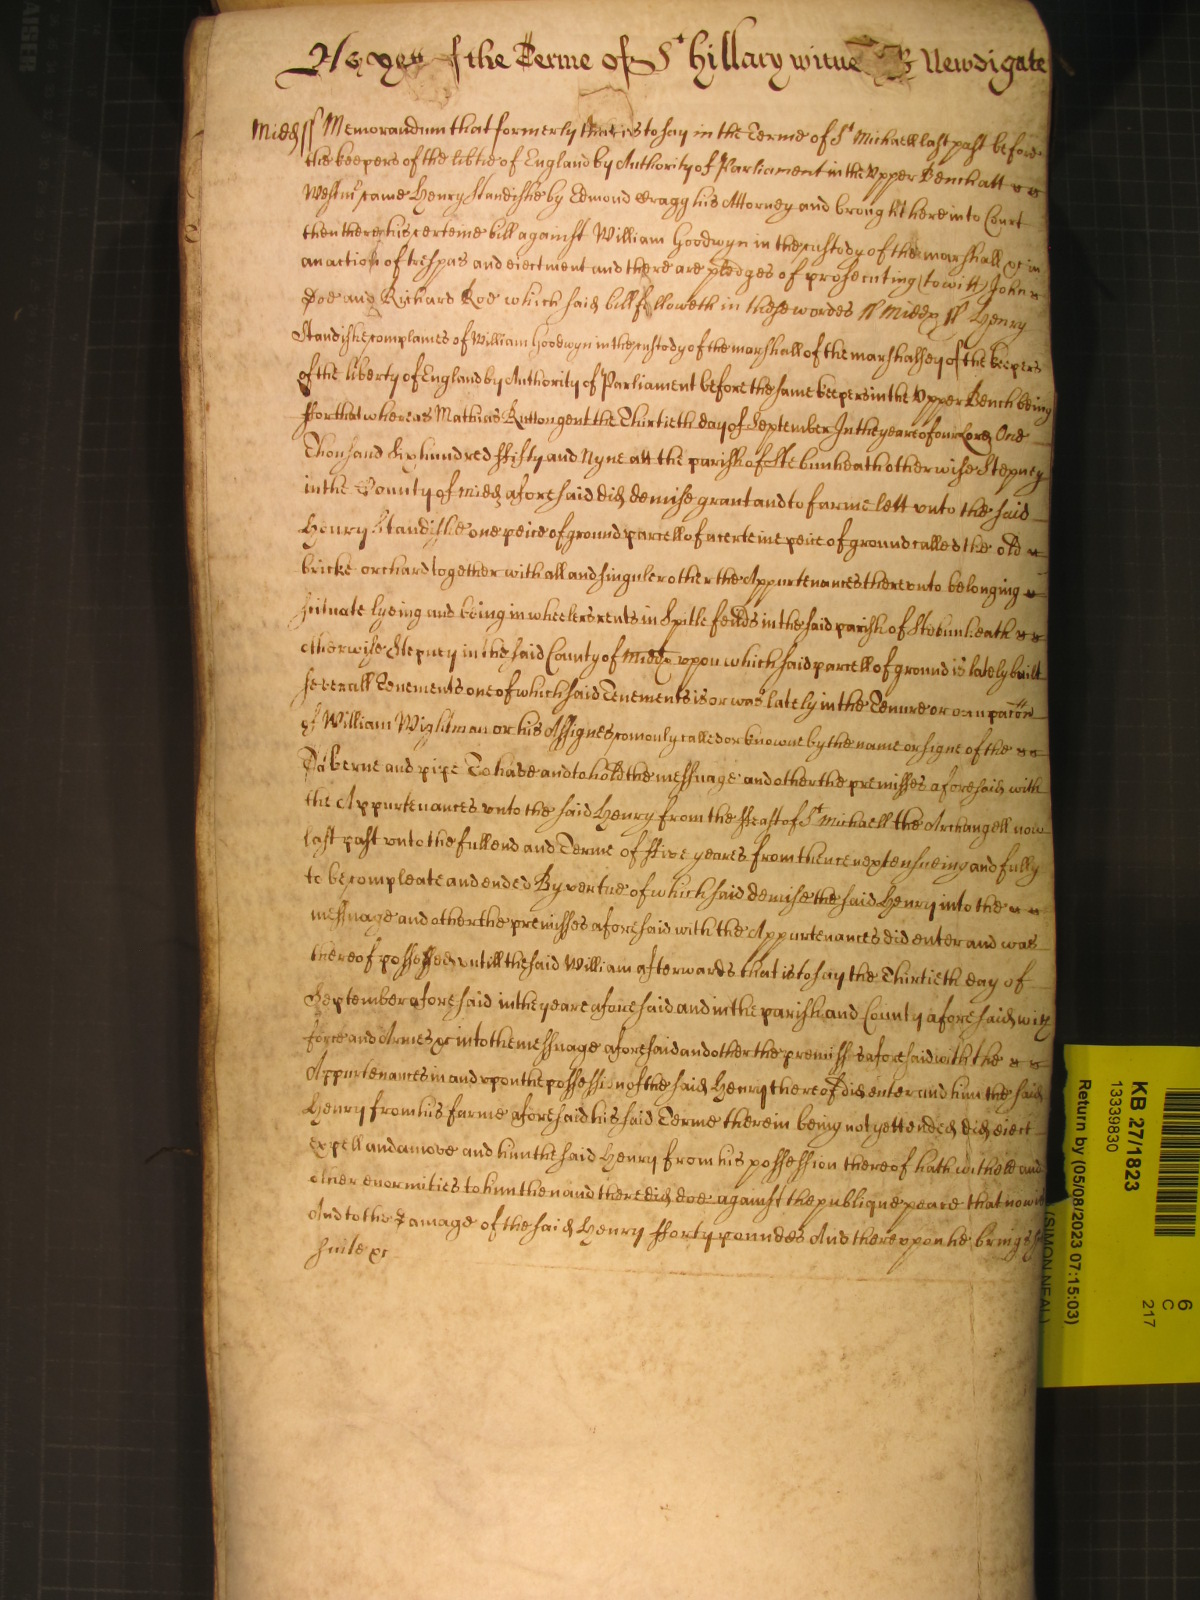 As yet of the Terme of St hillary witnes R Newdigate
Midd ss Memorandum that formerly that is to say in the Terme of St Michaell last past before
the keepers of the libtie of England by Authority of Parliament in the Vpper Bench att
Westmr came Henry Standishe by Edmond Cragg his Attorney and brought here into Court
then there his certeine bill against William Goodwyn in the custody of the marshall &c in
an action of trespas and eiectment and there are pledges of prosecuting (to witt) John
Doe and Richard Roe which said bill followeth in these wordes ss Middx ss Henry
Standishe complaines of William Goodwyn in the custody of the marshall of the marshalsey of the keepers
of the liberty of England by Authority of Parliament before the same keepers in the Vpper Bench being
ffor that whereas Mathias Rutton gent the Thirtieth day of September In the yeare of our Lord One
Thousand Six hundred ffifty and Nyne att the parish of Stebunheath otherwise Stepney
in the County of Midd aforesaid did demise grant and to farme lett vnto the said
Henry Standishe one peice of ground parcell of a certeine peice of ground called the old
bricke orchard together with all and singuler other the Appurtenances therevnto belonging
scituate lyeing and being in wheelers rents in Spittle feilds in the said parish of Stebunheath
otherwise Stepney in the said County of Middx vpon which said parcell of ground is lately built
severall Tenements one of which said Tenements is or was lately in the Tenure or occupacon
of William Wightman or his Assignes comonly called or knowne by the name or signe of the
Taberne and pipe To have and to hold the messuage and other the premisses aforesaid with
the Appurtenances vnto the said Henry from the ffeast of St Michaell the Archangell now
last past vnto the full end and Terme of ffive yeares from thence next ensueing and fully
to be compleate and ended By vertue of which said demise the said Henry into the
messuage and other the premisses aforesaid with the Appurtenances did enter and was
thereof possessed vntill the said William afterwards that is to say the Thirtieth day of
September aforesaid in the yeare aforesaid and in the parish and County aforesaid with
force and Armes &c into the messuage aforesaid and other the premisses aforesaid with the
Appurtenances in and vpon the possession of the said Henry thereof did enter and him the said
Henry from his farme aforesaid his said Terme therein being not yett ended did eiect
expell and amove and him the said Henry from his possession thereof hath withheld and
other enormities to him then and there did doe against the publique peace that now is
And to the damage of the said Henry fforty poundes And therevpon he brings
suite &c
KB 27/1823
13339830
Return by (05/08/2023 07:15:03)
(SIMON NEAL)
6
C
217